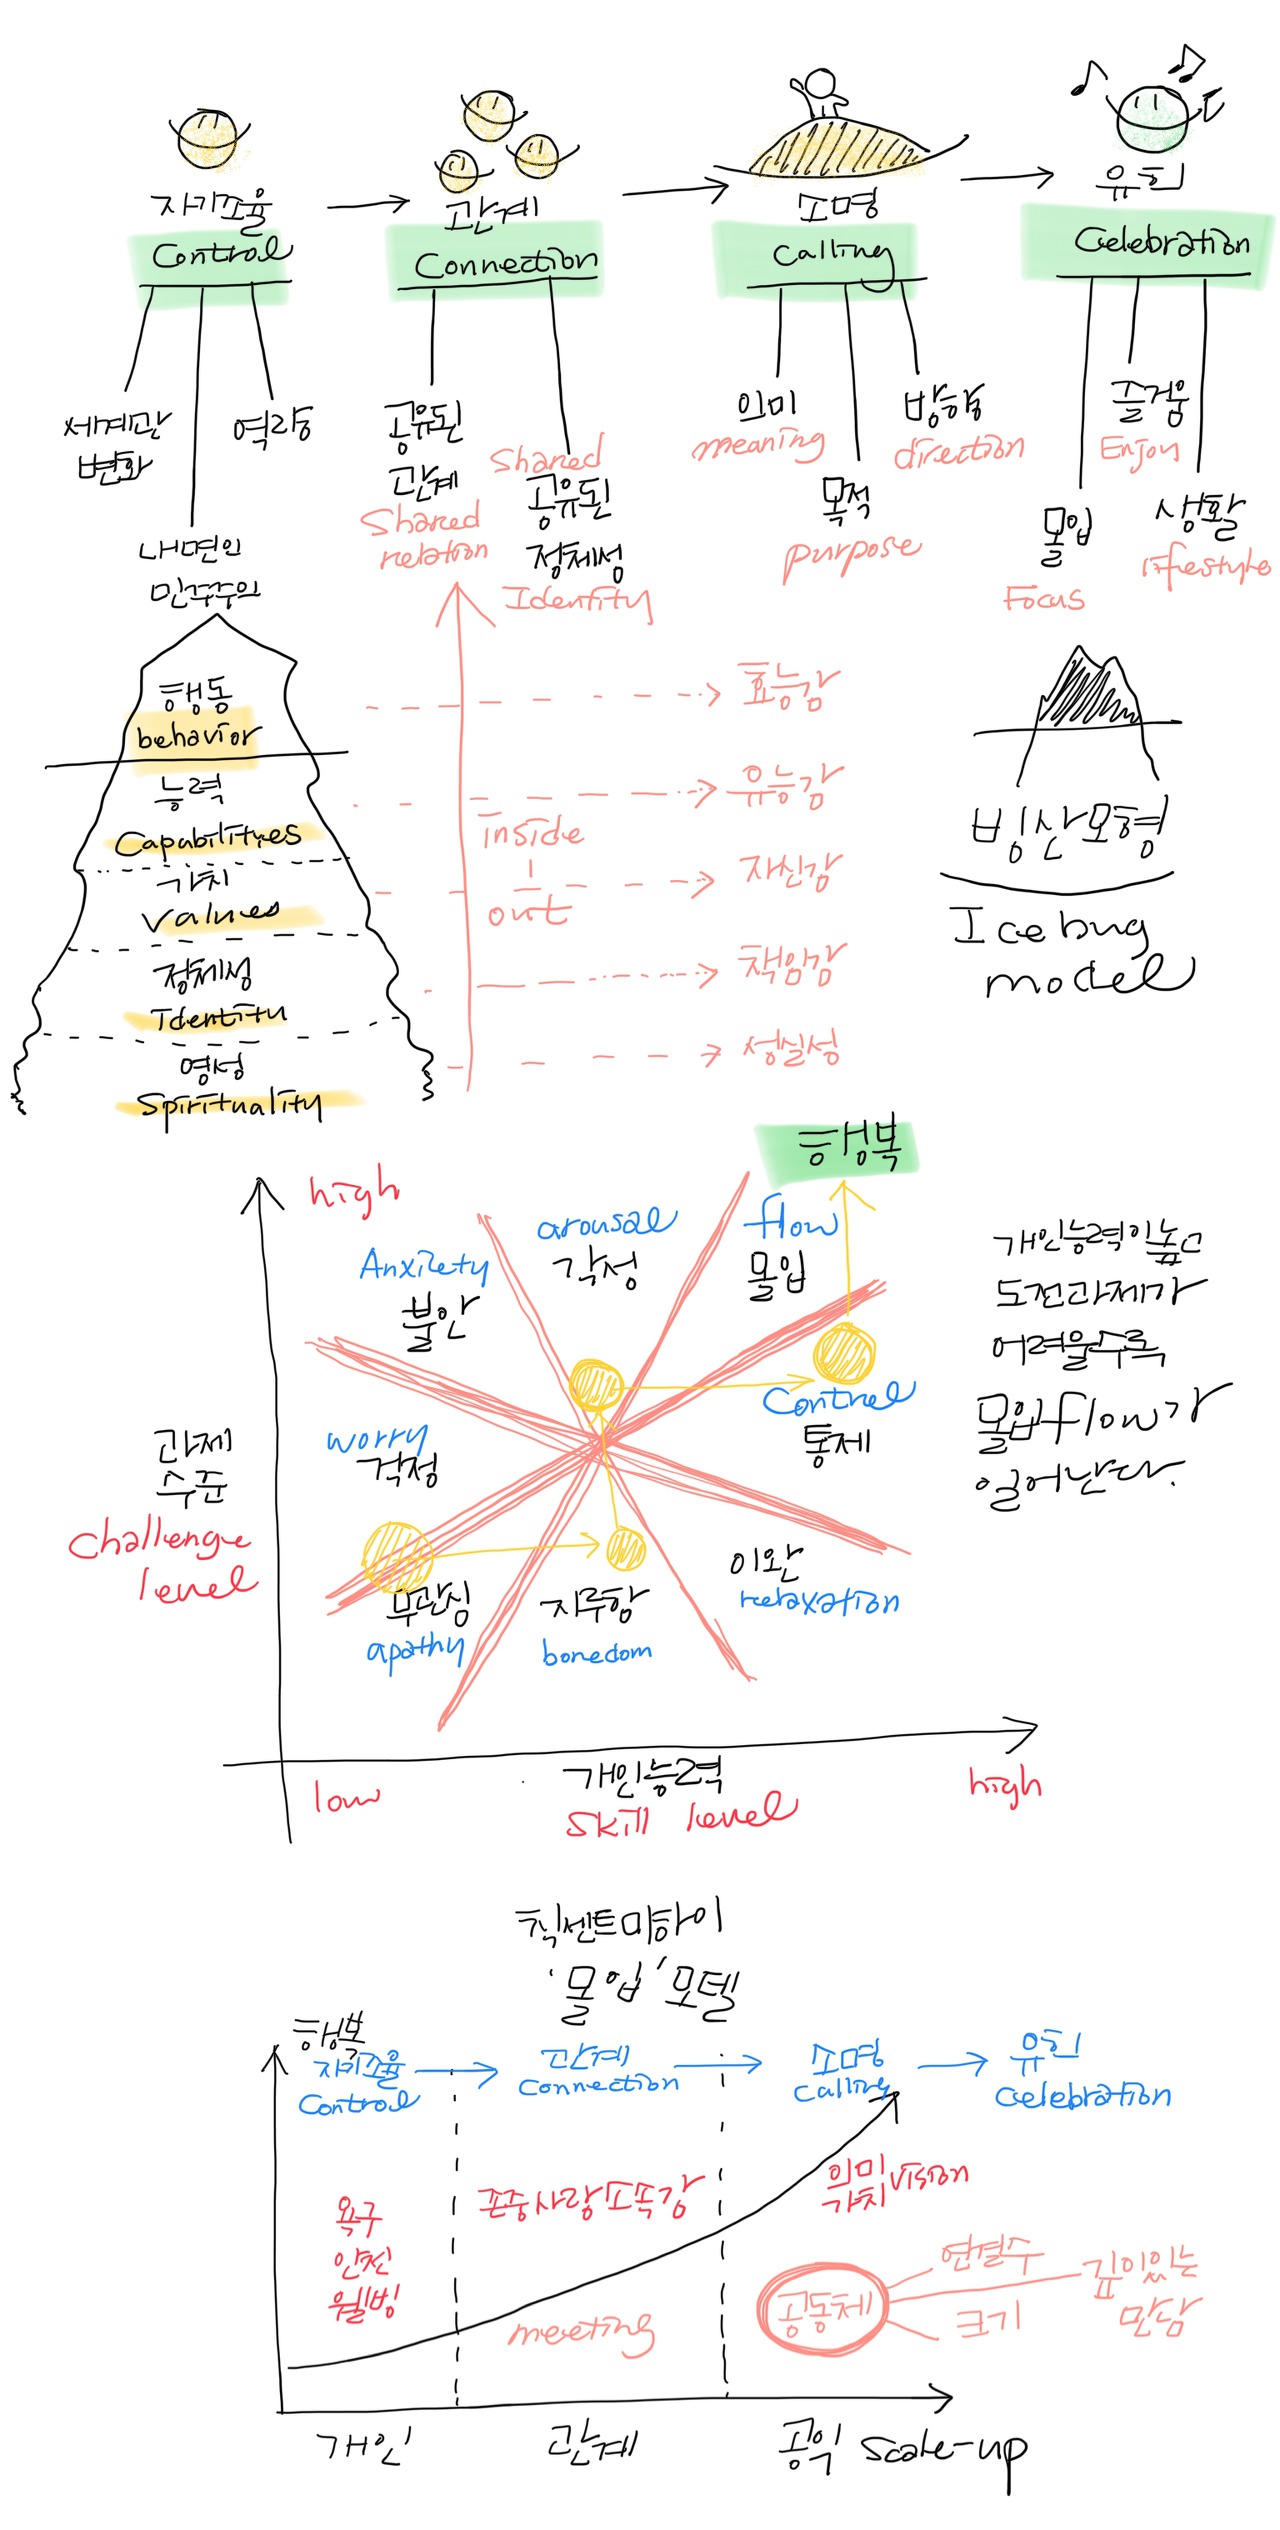 자기조율
Control
관계
Connection
소명
Calling
유희
Celebration
세계관
변화
내면의
민주주의
역량
공유된
관계
Shared
relation
Shared
공유된
정체성
Identity
의미
meaning
목적
purpose
방향
direction
몰입
Focus
즐거움
Enjoy
생활
lifestyle
행동
behavior
능력
Capabilityes
가치
Values
정체성
Identity
영성
Spirituality
inside
out
효능감
유능감
자신감
책임감
성실성
빙산모형
Icebug
model
행복
high
Anxiety
불안
arousal
각성
flow
몰입
worry
걱정
Control
통제
무관심
apathy
지루함
boredom
이완
relaxation
과제
수준
challenge
level
low
개인능력
skill level
high
개인능력이 높고
도전과제가
어려울수록
몰입flow가
일어난다.
칙센트미하이
'몰입' 모델
행복
자기조율
Control
관계
Connection
소명
Calling
유희
Celebration
욕구
안전
웰빙
존중 사랑 소속감
의미
가치
vision
meeting
공동체
연결수
크기
깊이있는
만남
개인
관계
공익
scale-up